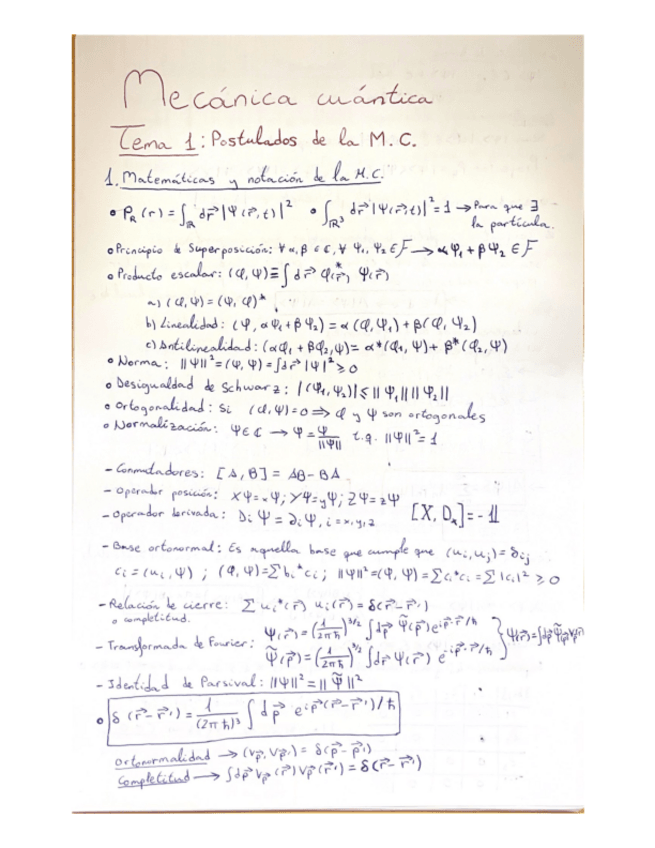 Mecánica cuántica
Tema 1: Postulados de la M.C.
1. Matemáticas y notación de la M.C.
• P_R(r) = ∫_R dr⃗ |Ψ(r⃗,t)|² • ∫_R³ dr⃗ |Ψ(r⃗,t)|² = 1 → Para que ∃
la partícula.
• Principio de Superposición: ∀ α, β ∈ ℂ, ∀ Ψ₁, Ψ₂ ∈ F → α Ψ₁ + β Ψ₂ ∈ F
• Producto escalar: (φ, Ψ) ≡ ∫ dr⃗ φ*(r⃗) Ψ(r⃗)
a) (φ, Ψ) = (Ψ, φ)*
b) Linealidad: (φ, α Ψ₁ + β Ψ₂) = α (φ, Ψ₁) + β (φ, Ψ₂)
c) Antilinealidad: (α φ₁ + β φ₂, Ψ) = α* (φ₁, Ψ) + β* (φ₂, Ψ)
• Norma: ||Ψ||² = (Ψ, Ψ) = ∫ dr⃗ |Ψ|² ≥ 0
• Desigualdad de Schwarz: |(Ψ₁, Ψ₂)| ≤ ||Ψ₁|| ||Ψ₂||
• Ortogonalidad: Si (φ, Ψ) = 0 ⇒ φ y Ψ son ortogonales
• Normalización: Ψ ∈ ℂ → Ψ = Ψ/||Ψ|| t.q. ||Ψ||² = 1
- Conmutadores: [A, B] = AB - BA
- Operador posición: XΨ = xΨ; YΨ = yΨ; ZΨ = zΨ
- Operador derivada: D_i Ψ = ∂_i Ψ, i = x, y, z [X, D_x] = -1
- Base ortonormal: Es aquella base que cumple que (u_i, u_j) = δ_ij
c_i = (u_i, Ψ) ; (φ, Ψ) = Σ b_i* c_i ; ||Ψ||² = (Ψ, Ψ) = Σ c_i* c_i = Σ |c_i|² ≥ 0
- Relación de cierre: Σ u_i*(r⃗) u_i(r⃗') = δ(r⃗ - r⃗')
o completitud.
- Transformada de Fourier: Ψ(r⃗) = (1/2πħ)^3/2 ∫ dp⃗ Ψ̃(p⃗) e^{ip⃗·r⃗/ħ}
Ψ̃(p⃗) = (1/2πħ)^3/2 ∫ dr⃗ Ψ(r⃗) e^{-ip⃗·r⃗/ħ} } Ψ(r⃗) = ∫ dp⃗ Ψ̃(p⃗) v_p(r⃗)
- Identidad de Parsival: ||Ψ||² = ||Ψ̃||²
• δ(r⃗ - r⃗') = 1/(2πħ)³ ∫ dp⃗ e^{ip⃗(r⃗ - r⃗')/ħ}
Ortonormalidad → (v_p⃗, v_p⃗') = δ(p⃗ - p⃗')
Completitud → ∫ dp⃗ v_p⃗(r⃗) v_p⃗(r⃗') = δ(r⃗ - r⃗')